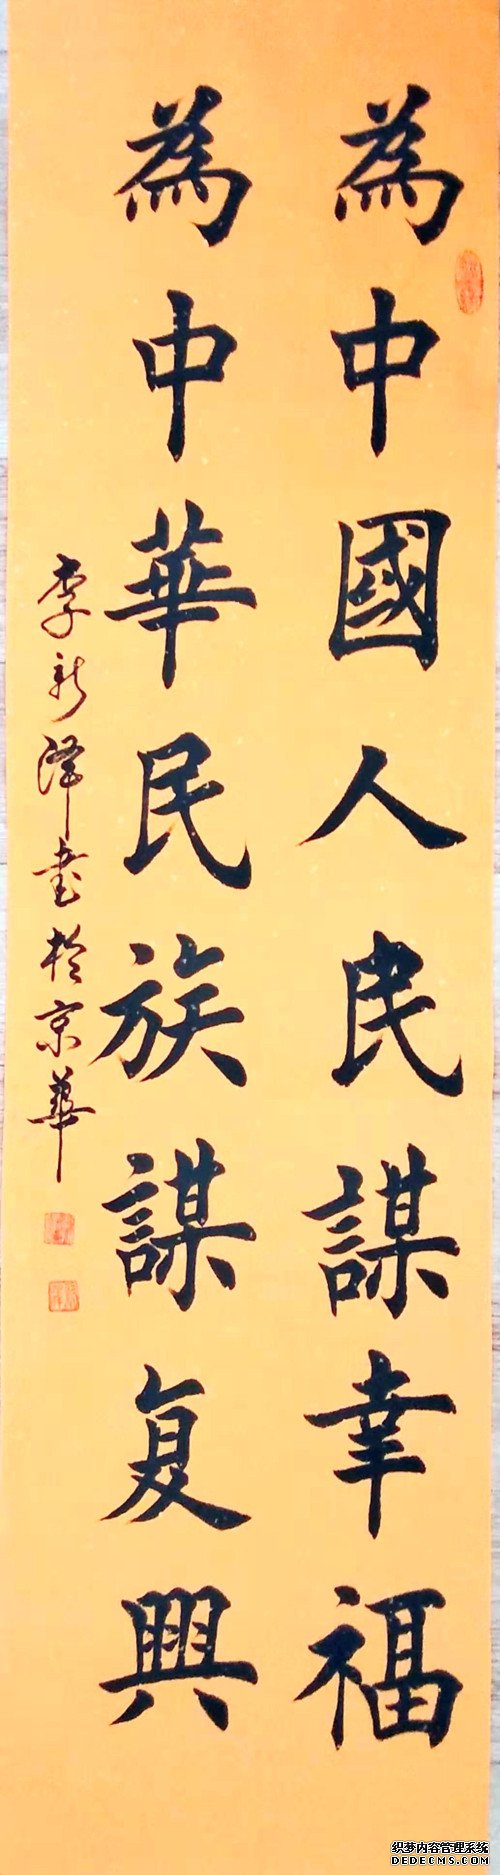 為中國人民謀幸福
為中華民族謀复興
李新泽書於京華
织梦内容管理系统
DEDECMS.COM